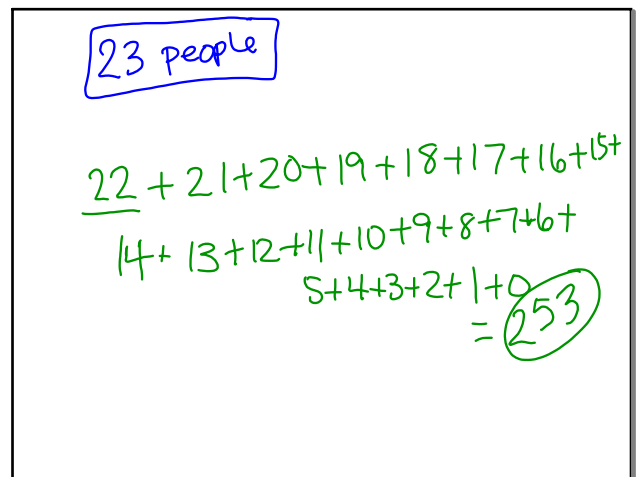 23 people
22 + 21+20+19+18+17+16+15+
14+ 13+12+11+10+9+8+7+6+
5+4+3+2+1+0
= 253